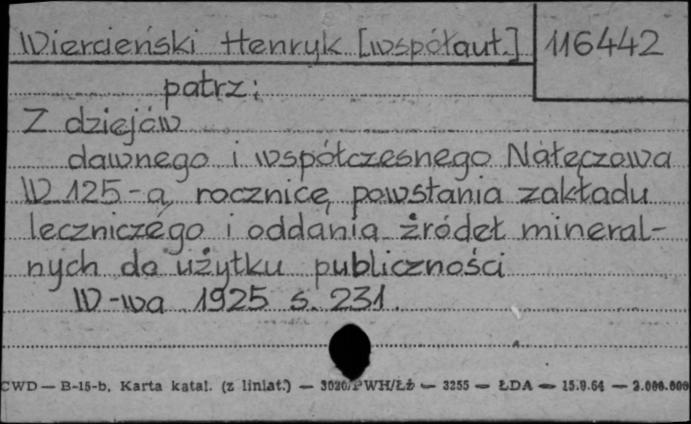 Wiercieński Henryk [współaut.] 116442
patrz:
Z dziejów
dawnego i współczesnego Nałęczowa
W 125-ą rocznicę powstania zakładu
leczniczego i oddania źródeł mineral-
nych do użytku publiczności
W-wa 1925 s. 231.
CWD — B-15-b. Karta katal. (z liniat.) — 3020/PWH/Łż — 3255 — ŁDA — 15.9.64 — 2.000.000